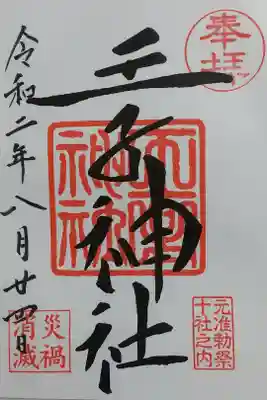 奉拝
王子神社
王子神社
元准勅祭
十社之内
令和二年八月廿四日
災禍
消滅